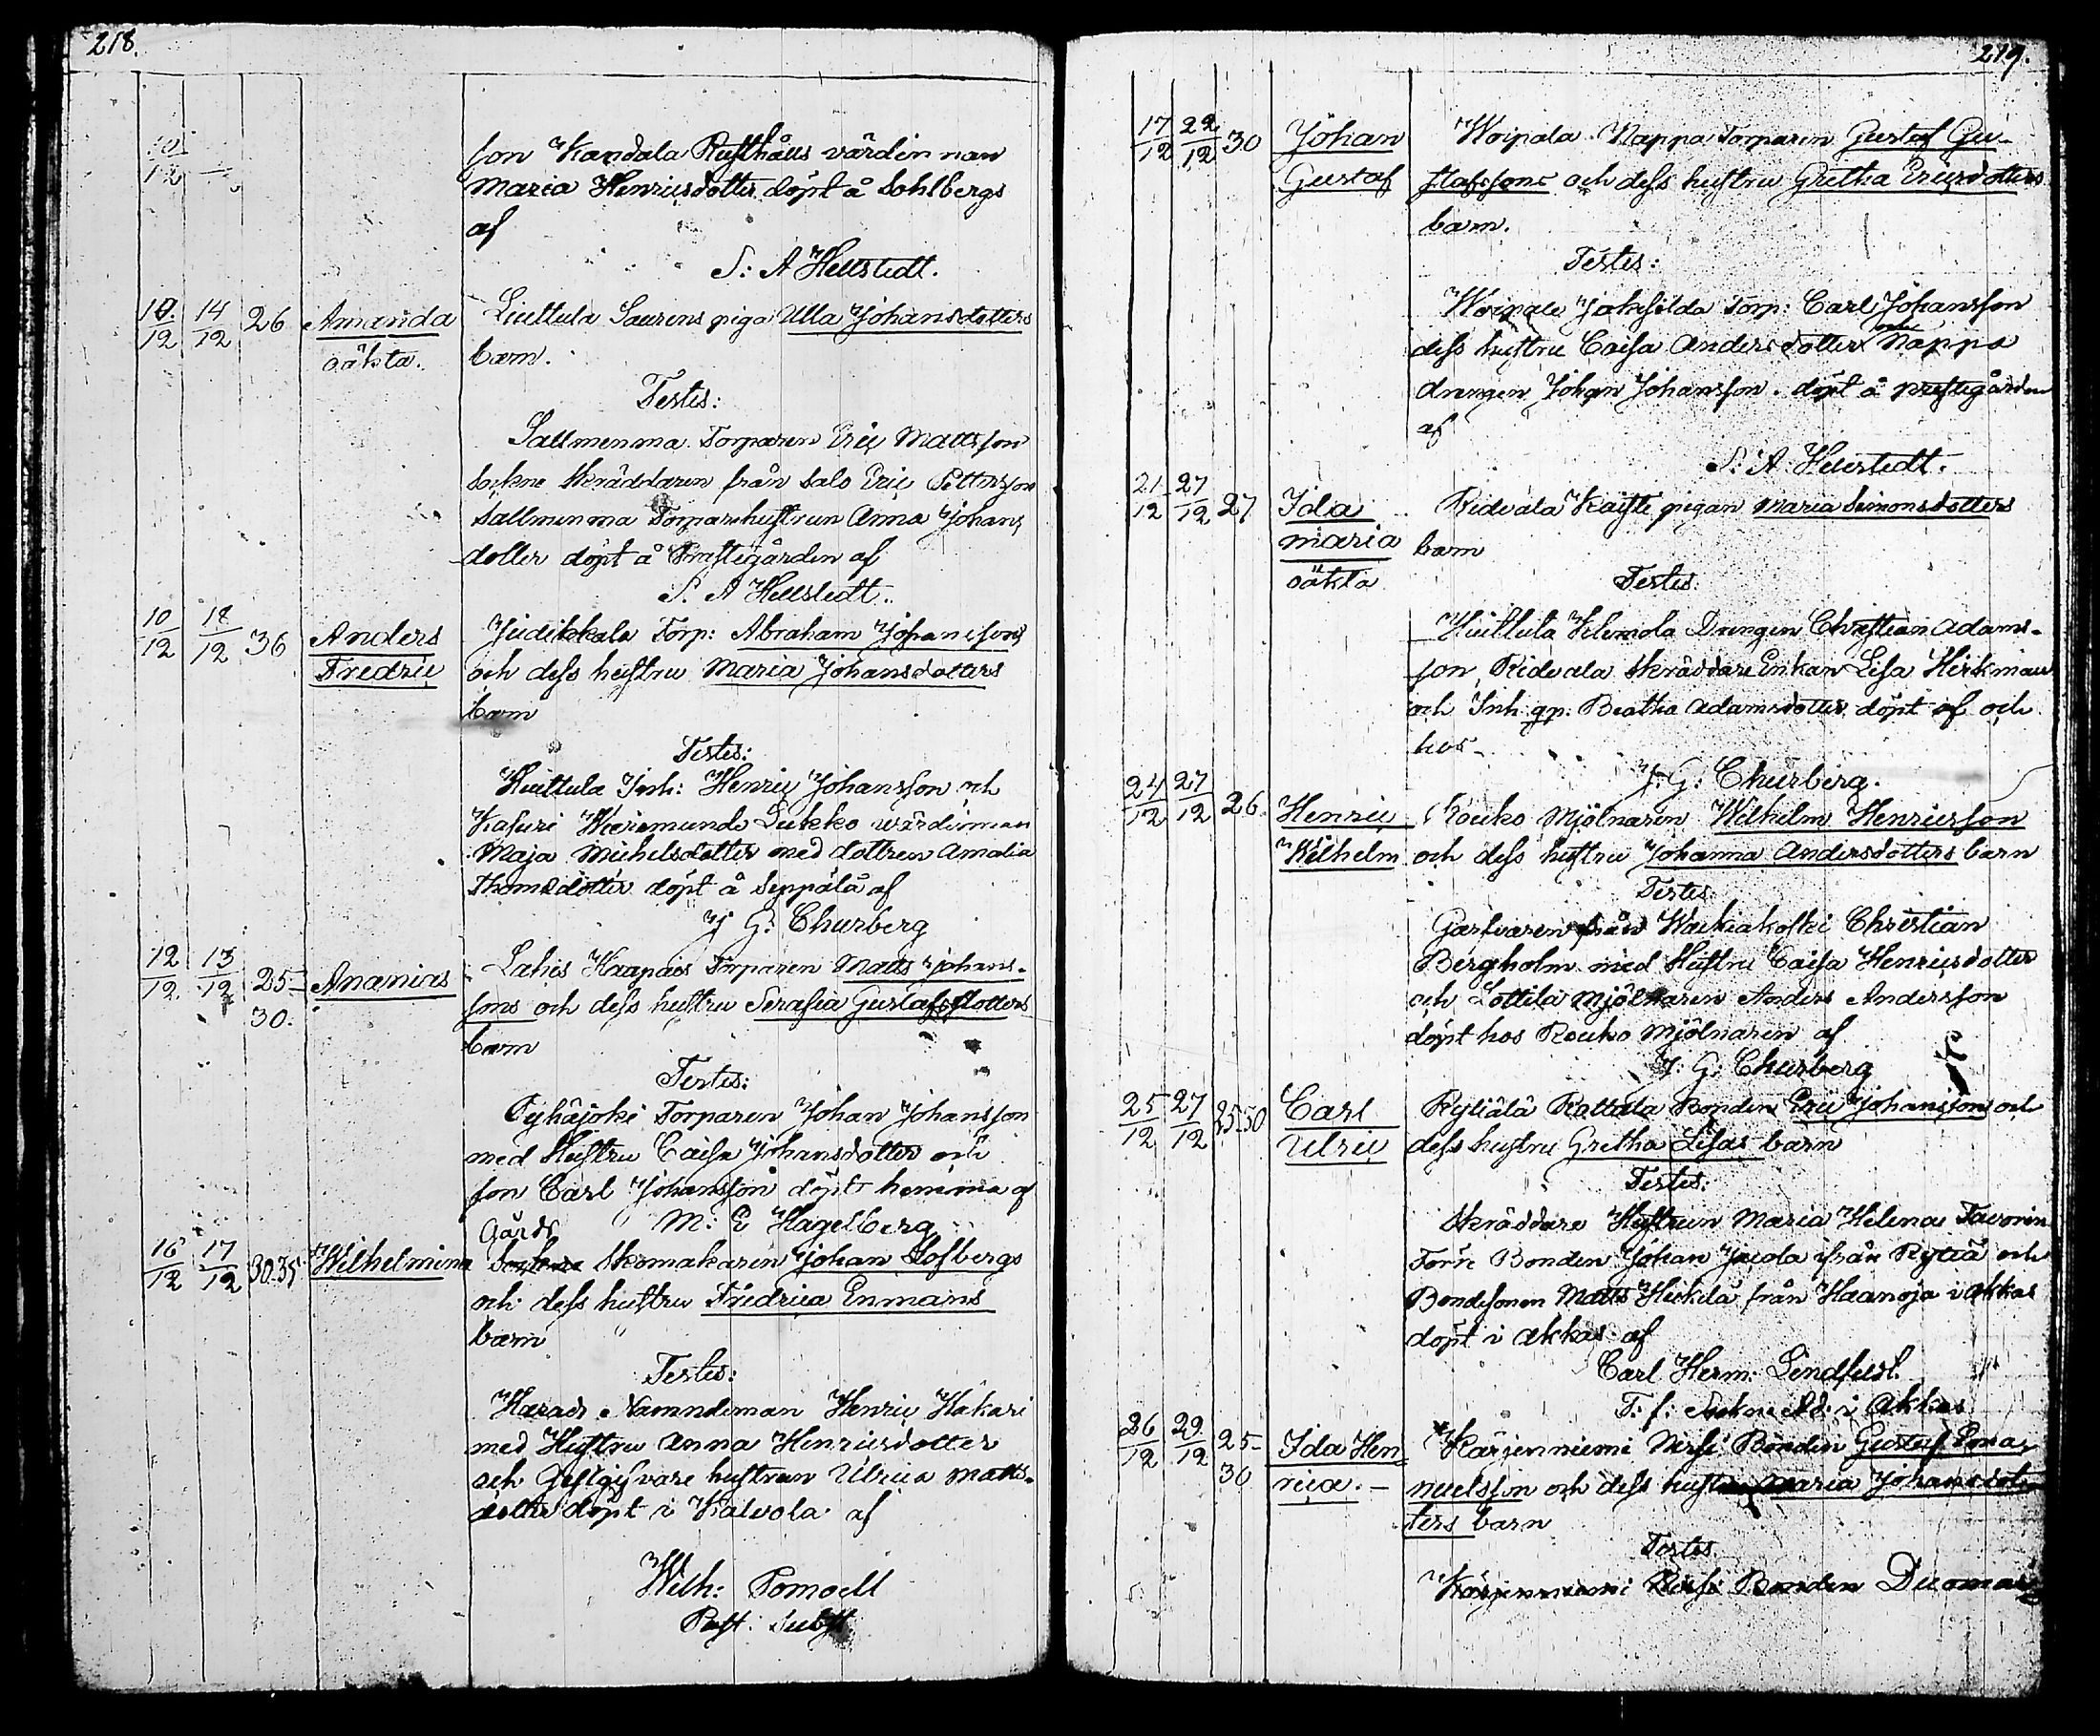 218.
10/12
son Kandala Rusthålls värdinnan
Maria Henricsdotter döpt å Sohlbergs
af
S: A Hellstedt.
10/12 14/12 26 Amanda Liuttula Saurens piga Ulla Johansdotters
oäkta. barn.
Testes:
Sallmenma Torparen Eric Mattsson
Sockne Skräddaren från Salo Eric Pettersson
Sallmenma Torparehustrun Anna Johans
dotter döpt å Prestegården af
S. A Hellstedt.
10/12 18/12 36 Anders Judikkala Torp: Abraham Johanssons
Fredric och dess hustru Maria Johansdotters
barn
Testes:
Huittula Inh: Henric Johansson och
Kasuri Sukko wärdinnan
Maja Michelsdotter med dottren Amalia
Thomsdotter döpt å Seppälä af
J G: Churberg
12/12 13/12 25- Ananias Lahis Haapais Torparen Matts Johans-
30. sons och dess hustru Serafia Gustafsdotters
barn
Testes:
Sykäjoki Torparen Johan Johansson
med Hustru Caisa Johansdotter och
son Carl Johansson döpt hemma af
M: E Hagelberg
Gårds
16/12 17/12 30.35 Wilhelmina Sockne Skomakaren Johan Lofbergs
och dess hustru Fredrica Enmans
barn
Testes:
Härads Nämndeman Henric Hakari
med Hustru Anna Henricsdotter
och Gestgifvare hustrun Ulrica Matts-
dotter döpt i Kalvola af
Wilh: Pomoell
Past: Subst
219.
17/12 22/12 30 Johan Woipala Nappa Torparen Gustaf Gu-
Gustaf stafssons och dess hustru Gretha Ericsdotters
barn.
Testes:
Woipala Jakosilda Torp: Carl Johansson
och
dess hustru Caisa Andersdotter Nappa
drengen Johan Johansson. döpt å prestegården
af
S: A: Hellstedt.
21/12 27/12 27 Ida Ridvala Kaiste pigan Maria Simonsdotters
Maria barn
oäkta Testes.
Huittula Wilemola Drengen Christian Adams-
son, Ridvala Skräddare Enkan Lisa Heikman
och Inh. gp: Beatha Adamsdotter döpt af och
hos
J: G: Churberg.
24/12 27/12 26. Henric Rouko Mjölnaren Wilhelm Henricsson
Wilhelm och dess hustru Johanna Andersdotters barn
Testes
Garfvaren från Wachiakoski Christian
Bergholm med Hustru Caisa Henricsdotter
och Lottila Mjölnaren Anders Andersson
döpt hos Rouko Mjölnaren af
J. G: Churberg
25/12 27/12 25.30 Carl Rytiälä Rattala Bonden Eric Johansson och
Ulric dess hustru Gretha Lisas barn
Testes:
Skräddare Hustrun Maria Helena Favorin
Förre Bonden Johan Jacola ifrån Rytiä och
Bondesonen Matts Heikilä från Haanoja i Akkas
döpt i Akkas af
Carl Herm: Lindqvist.
T: f: Sockne Ad: i Akkas
26/12 29/12 25- Ida Hen- Kärjenniemi Nirsi Bonden Gustaf Ema-
30 rica. nuelsson och dess hustru Maria Johansdot-
ters barn
Testes
Kärjenniemi Bonden Duomas